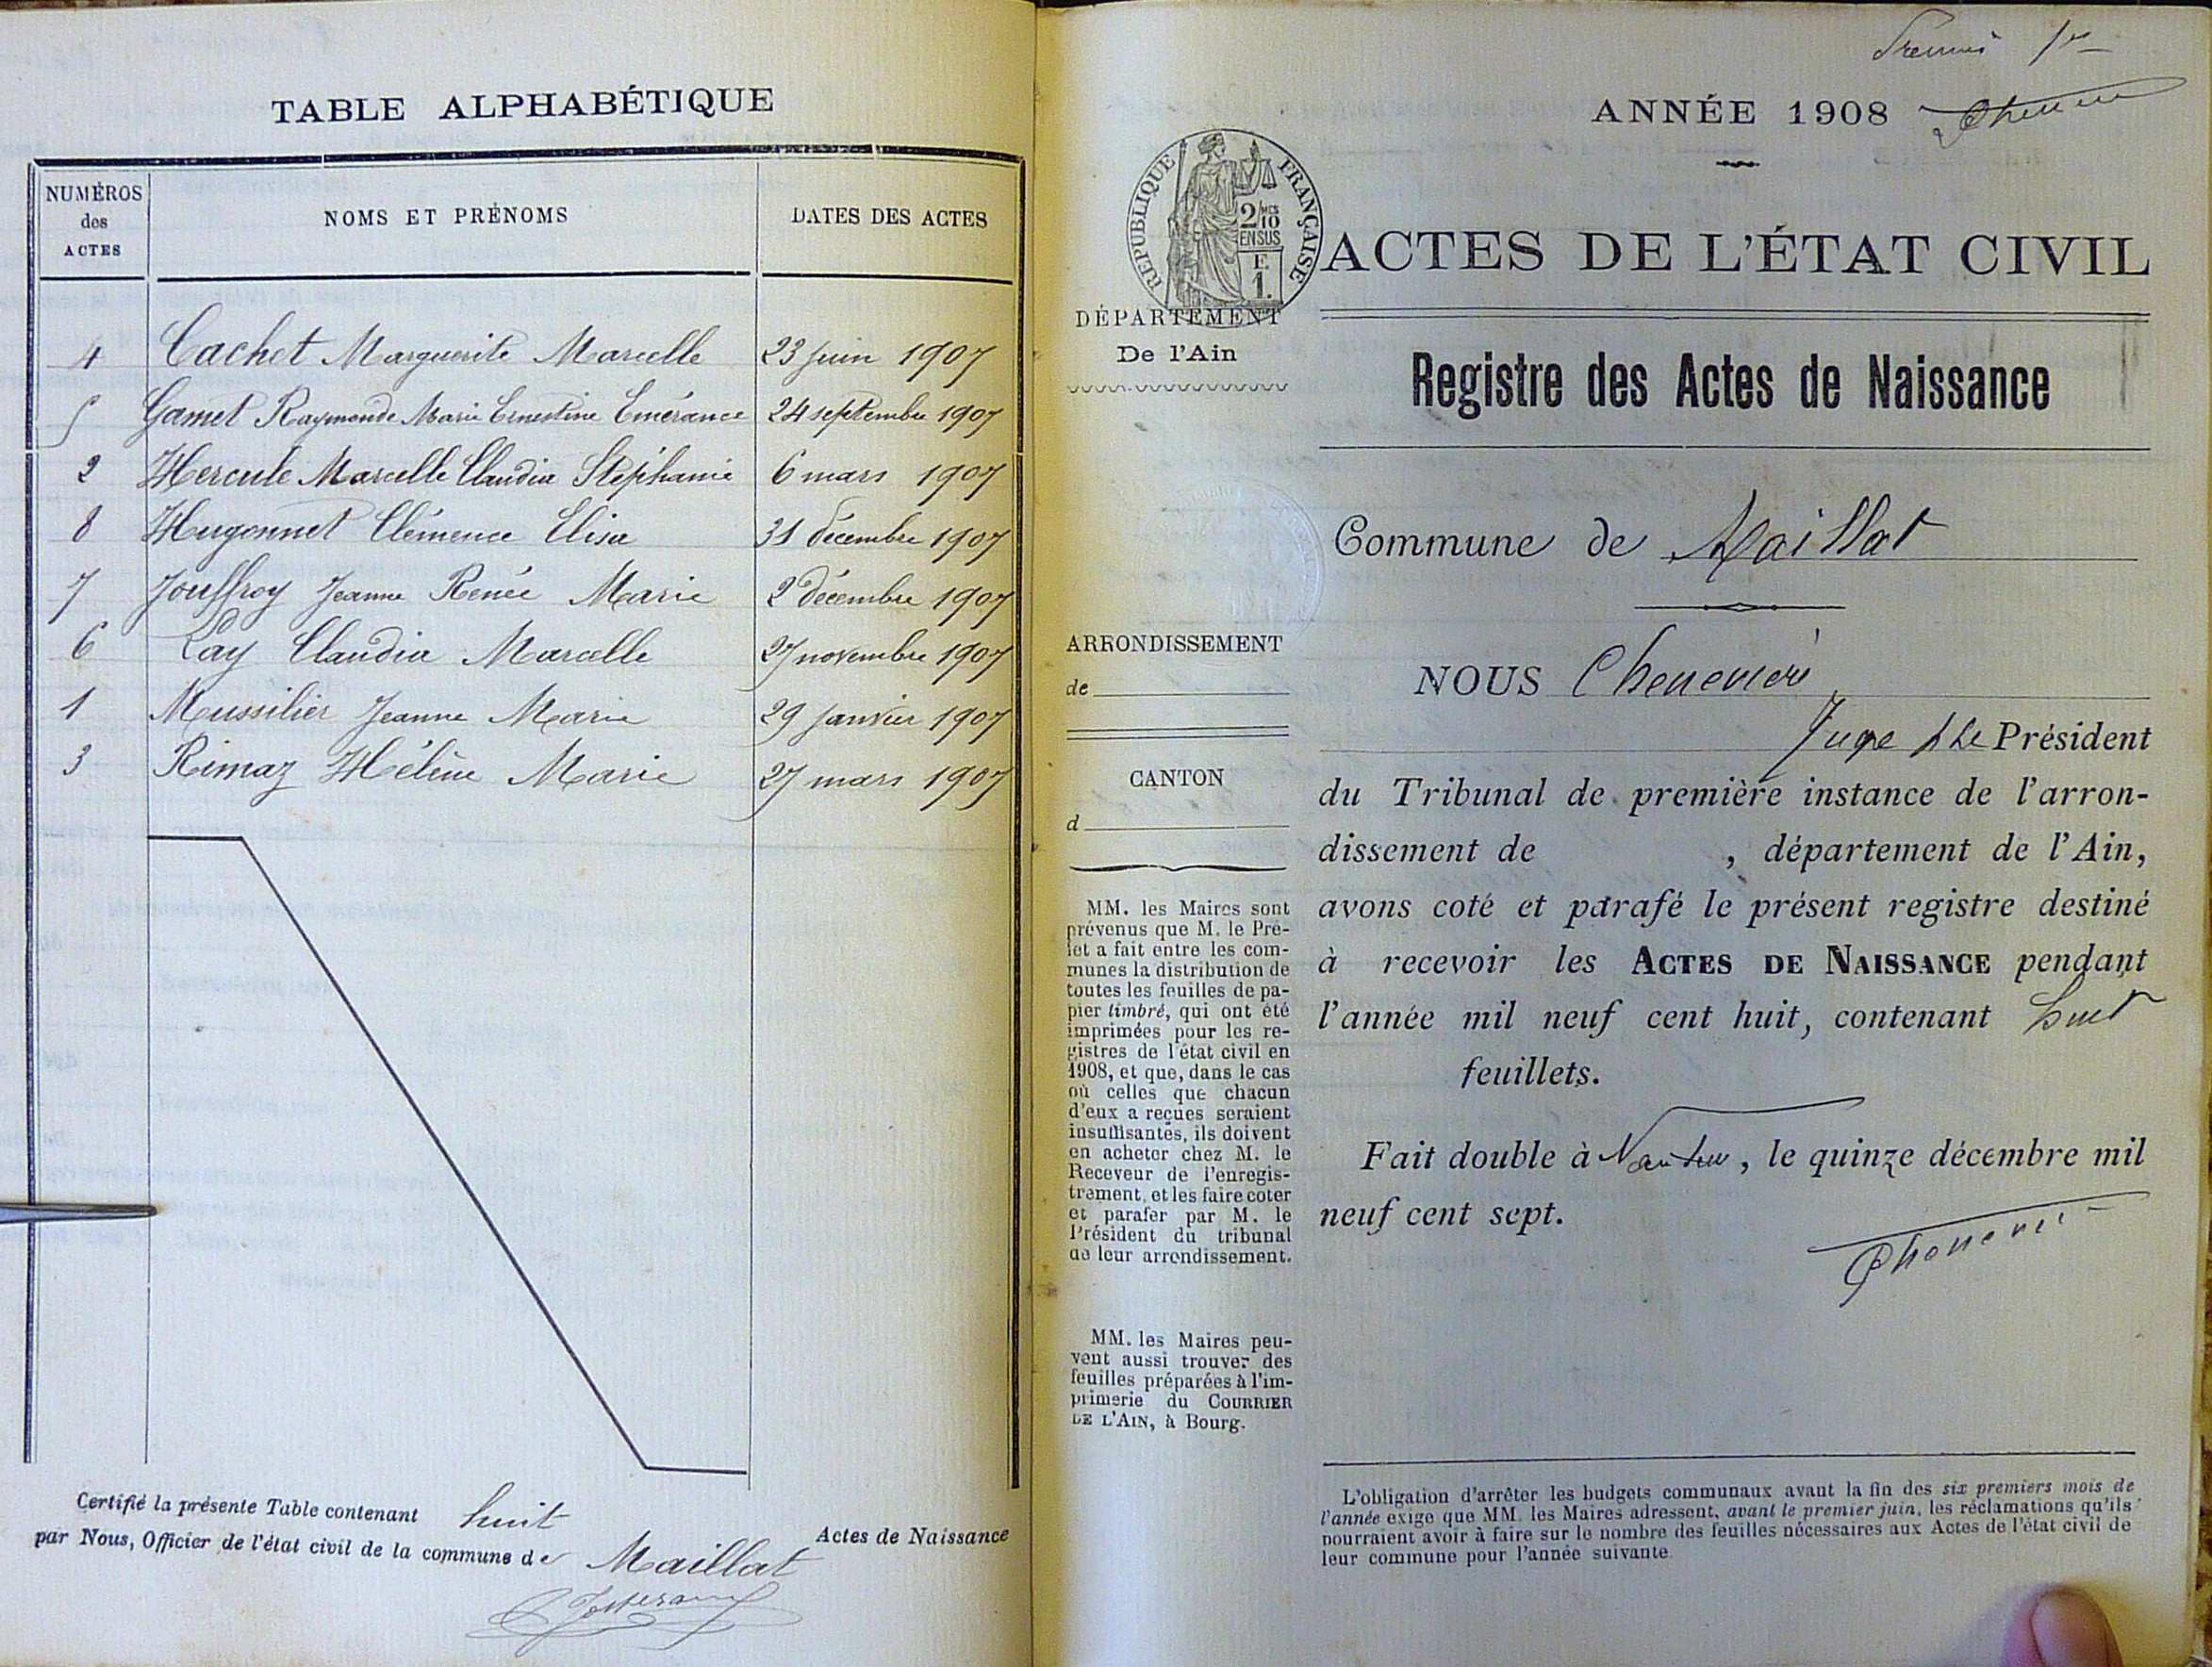 TABLE ALPHABÉTIQUE
NUMÉROS des ACTES
NOMS ET PRÉNOMS
DATES DES ACTES
4 Cachet Marguerite Marcelle 23 juin 1907
5 Gamet Raymonde Marie Ernestine Emérance 24 septembre 1907
2 Hercule Marcelle Claudia Stéphanie 6 mars 1907
8 Hugonnet Clémence Elisa 31 décembre 1907
7 Jouffroy Jeanne Renée Marie 2 décembre 1907
6 Lay Claudia Marcelle 27 novembre 1907
1 Mussilier Jeanne Marie 29 janvier 1907
3 Rimaz Hélène Marie 27 mars 1907
Certifié la présente Table contenant huit Actes de Naissance
par Nous, Officier de l'état civil de la commune de Maillat
Premier 1er
ANNÉE 1908
RÉPUBLIQUE FRANÇAISE
2/10
EN SUS
1.
DÉPARTEMENT
De l'Ain
ACTES DE L'ÉTAT CIVIL
Registre des Actes de Naissance
Commune de Maillat
ARRONDISSEMENT
de
CANTON
d
MM. les Maires sont
prévenus que M. le Pré-
fet a fait entre les com-
munes la distribution de
toutes les feuilles de pa-
pier timbré, qui ont été
imprimées pour les re-
gistres de l'état civil en
1908, et que, dans le cas
où celles que chacun
d'eux a reçues seraient
insuffisantes, ils doivent
en acheter chez M. le
Receveur de l'enregis-
trement, et les faire coter
et parafer par M. le
Président du tribunal
de leur arrondissement.
MM. les Maires peu-
vent aussi trouver des
feuilles préparées à l'im-
primerie du COURRIER
DE L'AIN, à Bourg.
NOUS
Juge Président
du Tribunal de première instance de l'arron-
dissement de , département de l'Ain,
avons coté et parafé le présent registre destiné
à recevoir les ACTES DE NAISSANCE pendant
l'année mil neuf cent huit, contenant huit
feuillets.
Fait double à Nantua, le quinze décembre mil
neuf cent sept.
L'obligation d'arrêter les budgets communaux avant la fin des six premiers mois de
l'année exige que MM. les Maires adressent, avant le premier juin, les réclamations qu'ils
pourraient avoir à faire sur le nombre des feuilles nécessaires aux Actes de l'état civil de
leur commune pour l'année suivante.